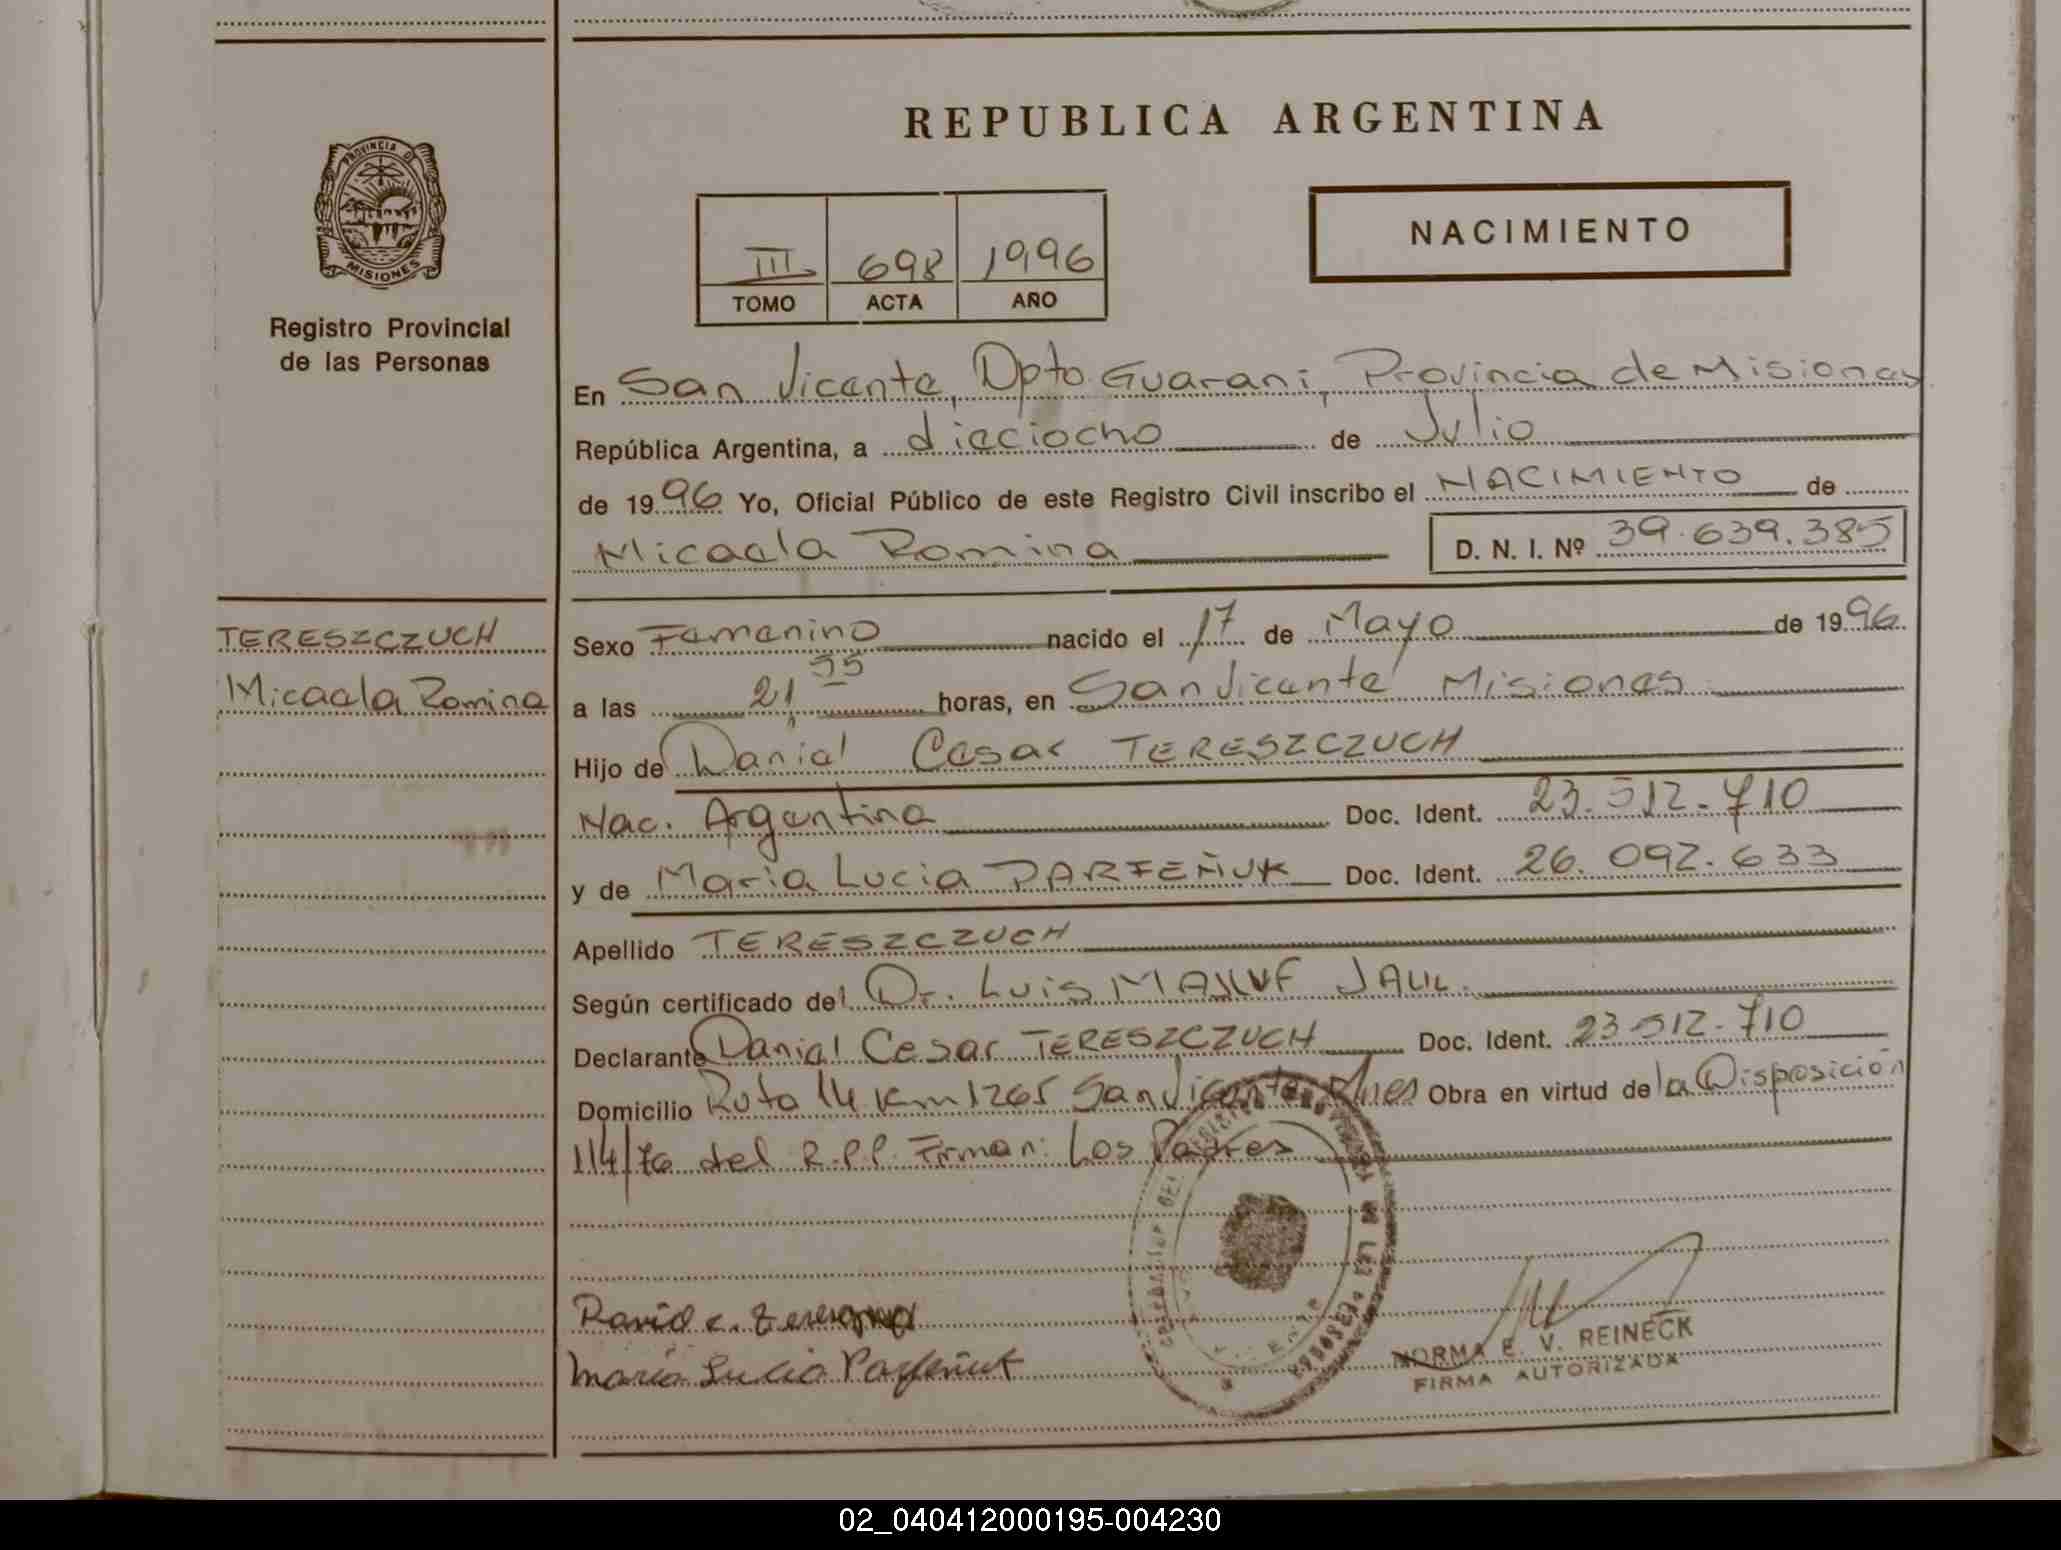 REPUBLICA ARGENTINA
PROVINCIA DE
MISIONES
Registro Provincial
de las Personas
NACIMIENTO
III 698 1996
TOMO ACTA AÑO
En San Vicente, Dpto Guarani, Provincia de Misiones
República Argentina, a dieciocho de Julio
de 1996 Yo, Oficial Público de este Registro Civil inscribo el NACIMIENTO de
Micaela Romina D. N. I. Nº 39.639.385
TERESZCZUCH
Micaela Romina
Sexo Femenino nacido el 17 de Mayo de 1996
a las 21,55 horas, en San Vicente Misiones
Hijo de Daniel Cesar TERESZCZUCH
Nac. Argentina Doc. Ident. 23.512.710
y de Maria Lucia PARFEÑUK Doc. Ident. 26.092.633
Apellido TERESZCZUCH
Según certificado del Dr. Luis MALUF JALIL.
Declarante Daniel Cesar TERESZCZUCH Doc. Ident. 23.512.710
Domicilio Ruta 14 Km 1265 San Vicente Mnes Obra en virtud de la Disposición
114/76 del R.P.P. Firman: Los Padres
Maria Lucia Parfeñuk
NORMA E. V. REINECK
FIRMA AUTORIZADA
02_040412000195-004230